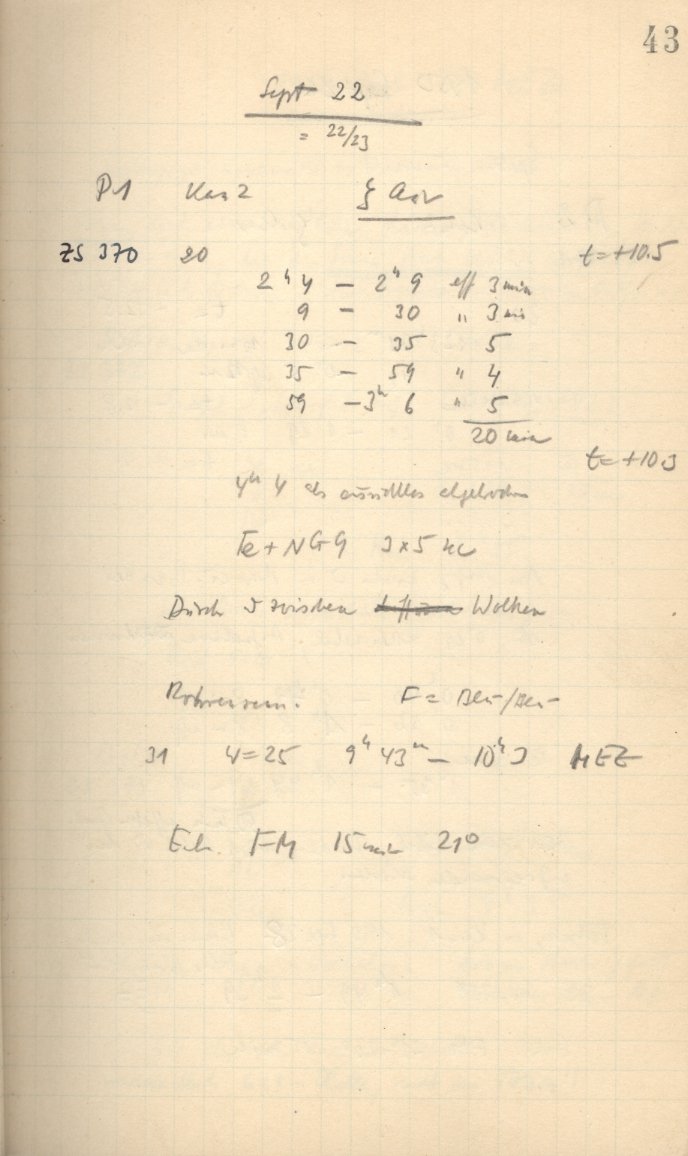 43
Sept 22
= 22/23
P1 Kas 2 ξ Aur
ZS 370 20 t=+10.5
2ʰ 4 — 2ʰ 9 eff 3 min
9 — 30 " 3 min
30 — 35 5
35 — 59 " 4
59 — 3ʰ 6 " 5
20 min
t=+10.3
4ʰ 4 als aussichtslos abgebrochen
Fe + NGG 3x5 sec
Durch zwischen Wolken
F = Blau/Blau
31 4=25 9ʰ 43ᵐ — 10ʰ 3 MEZ
FM 15 min 21°